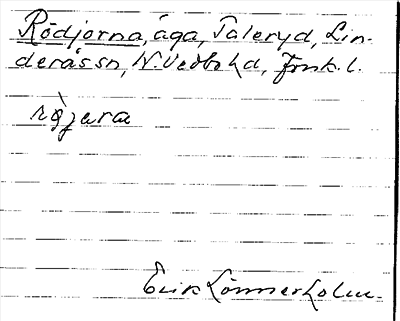 Rödjorna, äga, Taleryd, Lin-
deråssn, N. Vedbo hd, Jönk. l.
rö̀jarα
Erik Lönnerholm.